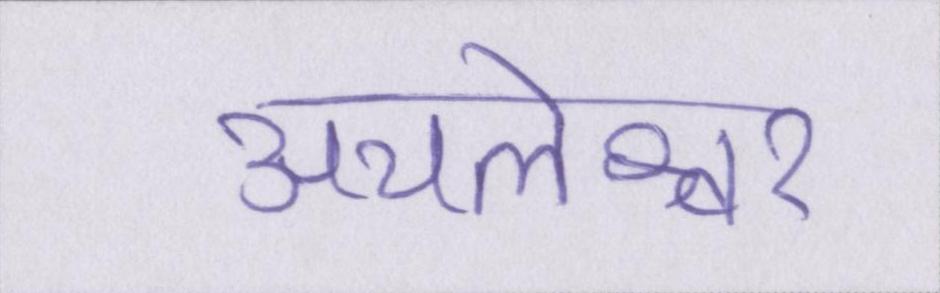 अचलेश्वर